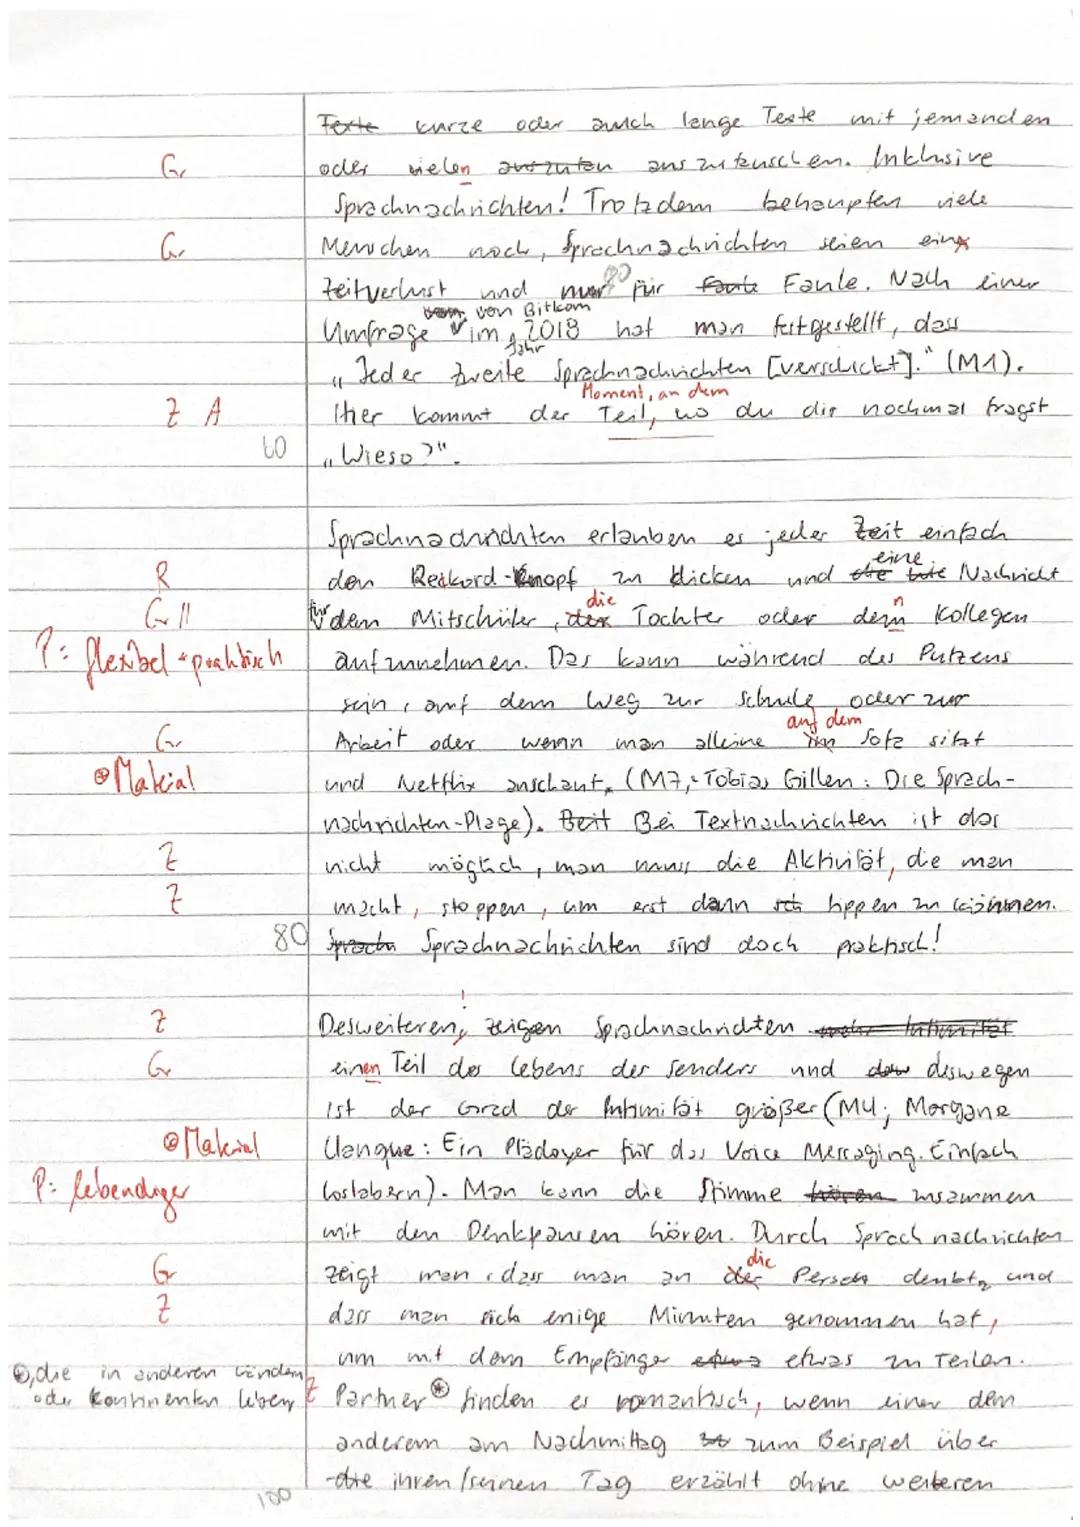 Texte kurze oder auch lange Texte mit jemanden
Gr oder vielen auszuten auszutauschen. Inklusive
Sprachnachrichten! Trotzdem behaupten viele
Gr Menschen noch, Sprachnachrichten seien eine
Zeitverlust und nur für Faule Faule. Nach einer
vom von Bitkom
Umfrage im Jahr 2018 hat man festgestellt, dass
„Jeder zweite Sprachnachrichten [verschickt]." (M1).
Moment, an dem
Z A Hier kommt der Teil, wo du dir nochmal fragst
60 „Wieso?".
Sprachnachrichten erlauben es jeder Zeit einfach
eine
R den Reckord-Knopf zu klicken und die Nachricht
die n
Gr || für dem Mitschüler, der Tochter oder dem Kollegen
P: flexibel + praktisch aufzunehmen. Das kann während des Putzens
sein, auf dem Weg zur Schule oder zur
auf dem
Gr Arbeit oder wenn man alleine im Sofa sitzt
⊕ Material und Netflix anschaut, (M7, Tobias Gillen: Die Sprach-
nachrichten-Plage). Beit Bei Textnachrichten ist das
Z nicht möglich, man muss die Aktivität, die man
Z macht, stoppen, um erst dann tippen zu können.
80 Sprachn Sprachnachrichten sind doch praktisch!
Z Desweiteren, zeigen Sprachnachrichten mehr Intimität
Gr einen Teil des Lebens des Senders und deswegen
ist der Grad der Intimität größer (M4; Morgane
⊕ Material Llangue: Ein Plädoyer für das Voice Messaging. Einfach
P: lebendiger loslabern). Man kann die Stimme hören zusammen
mit den Denkpausen hören. Durch Sprachnachrichten
die
Gr zeigt man, dass man an der Person denkt, und
Z dass man sich enige Minuten genommen hat,
um mit dem Empfänger etwas etwas zu Teilen.
⊛, die in anderen Ländern
oder Kontinenten leben,
Z Partner ⊛ finden es romantisch, wenn einer dem
anderem am Nachmittag zum Beispiel über
die ihren/seinen Tag erzählt ohne weiteren
100